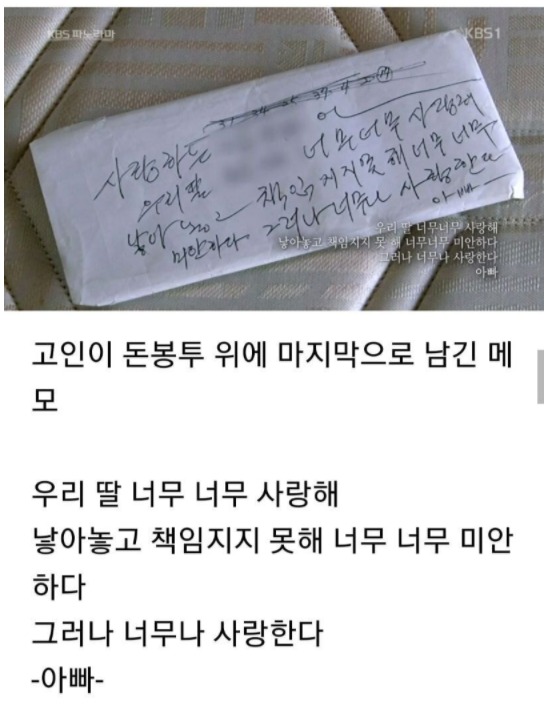 KBS 파노라마
KBS1
사랑하는
우리 딸
너무너무 사랑해
낳아놓고 책임지지 못해 너무 너무
미안하다 그러나 너무나 사랑한다
아빠
우리 딸 너무너무 사랑해
낳아놓고 책임지지 못 해 너무너무 미안하다
그러나 너무나 사랑한다
아빠
고인이 돈봉투 위에 마지막으로 남긴 메
모
우리 딸 너무 너무 사랑해
낳아놓고 책임지지 못해 너무 너무 미안
하다
그러나 너무나 사랑한다
-아빠-